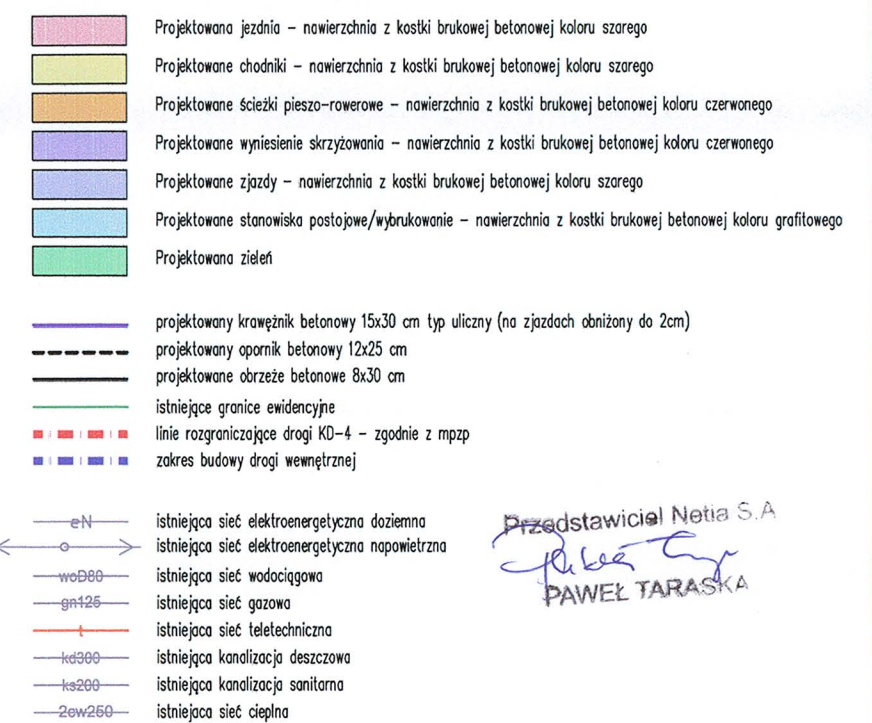 Projektowana jezdnia – nawierzchnia z kostki brukowej betonowej koloru szarego
Projektowane chodniki – nawierzchnia z kostki brukowej betonowej koloru szarego
Projektowane ścieżki pieszo-rowerowe – nawierzchnia z kostki brukowej betonowej koloru czerwonego
Projektowane wyniesienie skrzyżowania – nawierzchnia z kostki brukowej betonowej koloru czerwonego
Projektowane zjazdy – nawierzchnia z kostki brukowej betonowej koloru szarego
Projektowane stanowiska postojowe/wybrukowanie – nawierzchnia z kostki brukowej betonowej koloru grafitowego
Projektowana zieleń
projektowany krawężnik betonowy 15x30 cm typ uliczny (na zjazdach obniżony do 2cm)
projektowany opornik betonowy 12x25 cm
projektowane obrzeże betonowe 8x30 cm
istniejące granice ewidencyjne
linie rozgraniczające drogi KD-4 – zgodnie z mpzp
zakres budowy drogi wewnętrznej
eN istniejąca sieć elektroenergetyczna doziemna
istniejąca sieć elektroenergetyczna napowietrzna
woD80 istniejąca sieć wodociągowa
gn125 istniejąca sieć gazowa
t istniejaca sieć teletechniczna
kd300 istniejąca kanalizacja deszczowa
ks200 istniejąca kanalizacja sanitarna
2cw250 istniejaca sieć cieplna
Przedstawiciel Netia S.A
PAWEŁ TARASKA